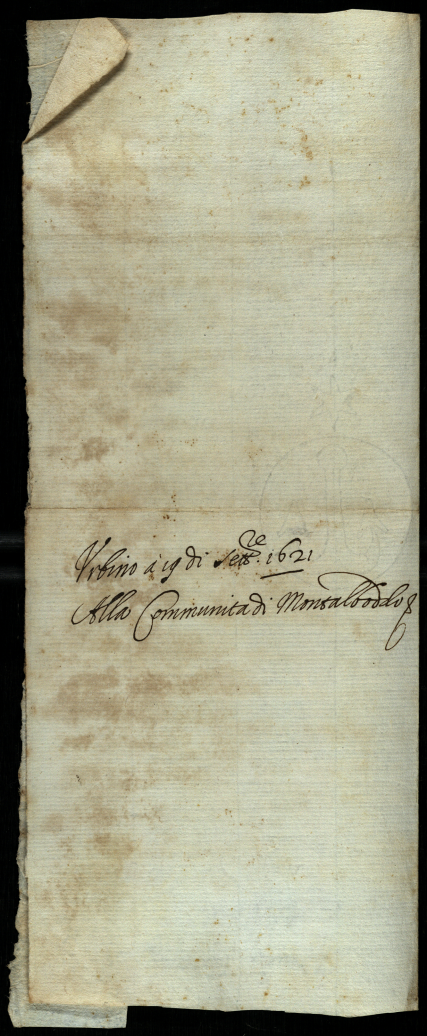 Vrbino à 19 di Sett.re 1621
Alla Communita di Montalboddo